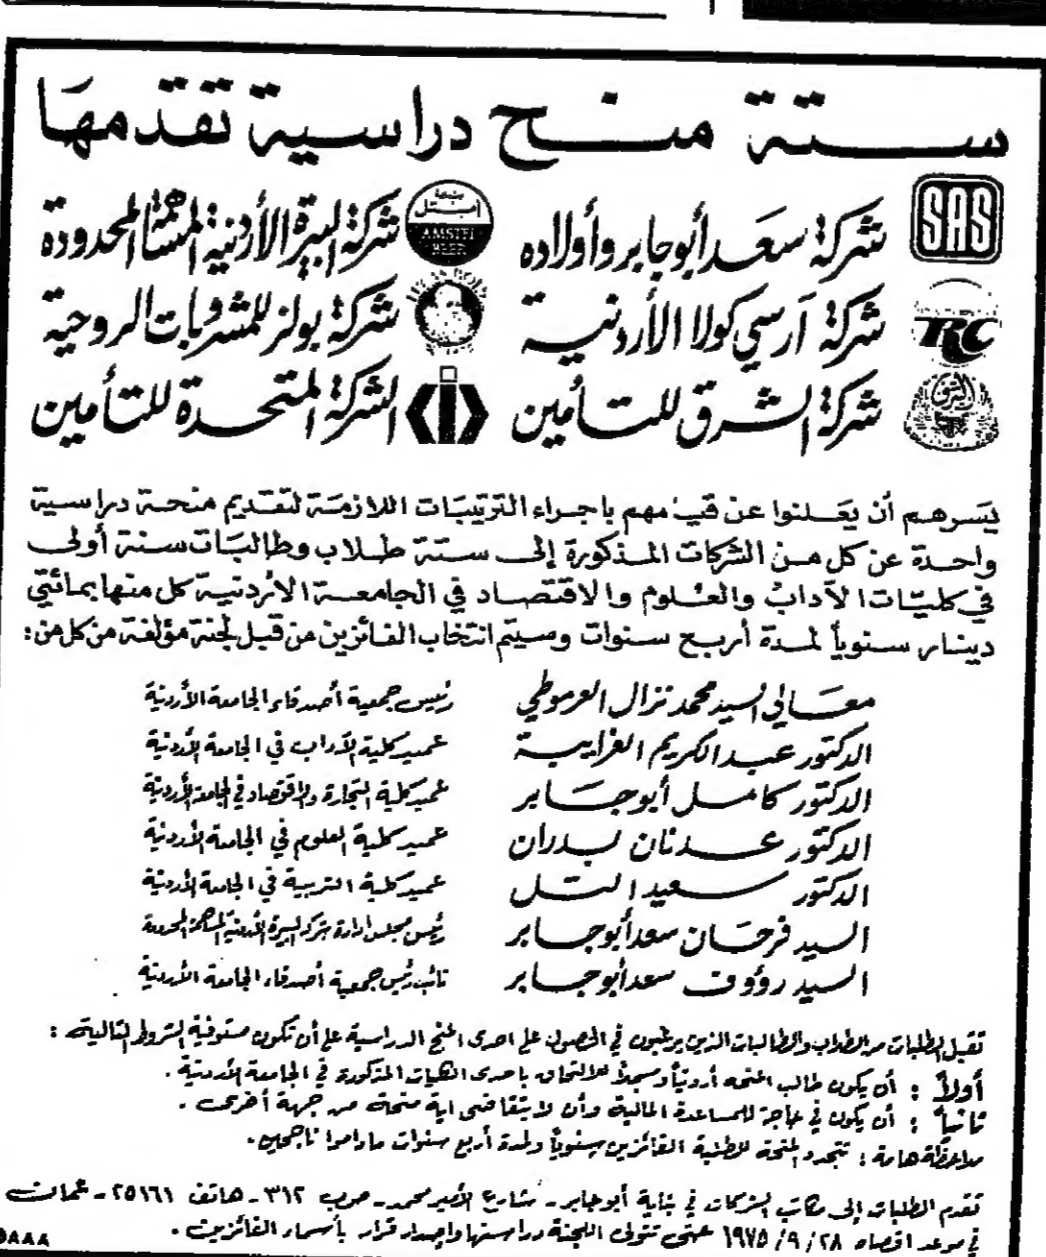 ستة منح دراسية تقدمها
SAS شركة سعد أبوجابر وأولاده
AMSTEL BEER شركة البيرة الأردنية المساهمة المحدودة
RC شركة آرسي كولا الأردنية
شركة بولز للمشروبات الروحية
الشرق شركة الشرق للتأمين
الشركة المتحدة للتأمين
يسرهم أن يعلنوا عن قيامهم باجراء الترتيبات اللازمة لتقديم منحة دراسية
واحدة عن كل من الشركات المذكورة إلى ستة طلاب وطالبات سنة أولى
في كليات الآداب والعلوم والاقتصاد في الجامعة الأردنية كل منها بمائتي
دينار سنوياً لمدة أربع سنوات وسيتم انتخاب الفائزين من قبل لجنة مؤلفة من كل من:
معالي السيد محمد نزال العرموطي رئيس جمعية أصدقاء الجامعة الأردنية
الدكتور عبد الكريم الغرايبة عميد كلية الآداب في الجامعة الأردنية
الدكتور كامل أبوجابر عميد كلية التجارة والاقتصاد في الجامعة الأردنية
الدكتور عدنان بدران عميد كلية العلوم في الجامعة الأردنية
الدكتور سعيد التل عميد كلية التربية في الجامعة الأردنية
السيد فرحان سعد أبوجابر رئيس مجلس ادارة شركة البيرة الأردنية المساهمة المحدودة
السيد رؤوف سعد أبوجابر نائب رئيس جمعية أصدقاء الجامعة الأردنية
تقبل الطلبات من الطلاب والطالبات الذين يرغبون في الحصول على احدى المنح الدراسية على أن تكون مستوفية الشروط التالية :
أولاً : أن يكون طالب المنحة أردنياً ومسجلاً للالتحاق باحدى الكليات المذكورة في الجامعة الأردنية .
ثانياً : أن يكون في حاجة للمساعدة المالية وأن لا يتقاضى اية منحة من جهة أخرى .
ملاحظة هامة : تتجدد المنحة للطلبة الفائزين سنوياً ولمدة أربع سنوات ما داموا ناجحين .
تقدم الطلبات إلى مكاتب الشركات في بناية أبوجابر - شارع الأمير محمد - ص.ب ٣١٢ - هاتف ٢٥١٦١ - عمان
في موعد اقصاه ٢٨ / ٩ / ١٩٧٥ حتى تتولى اللجنة دراستها واصدار قرار بأسماء الفائزين .